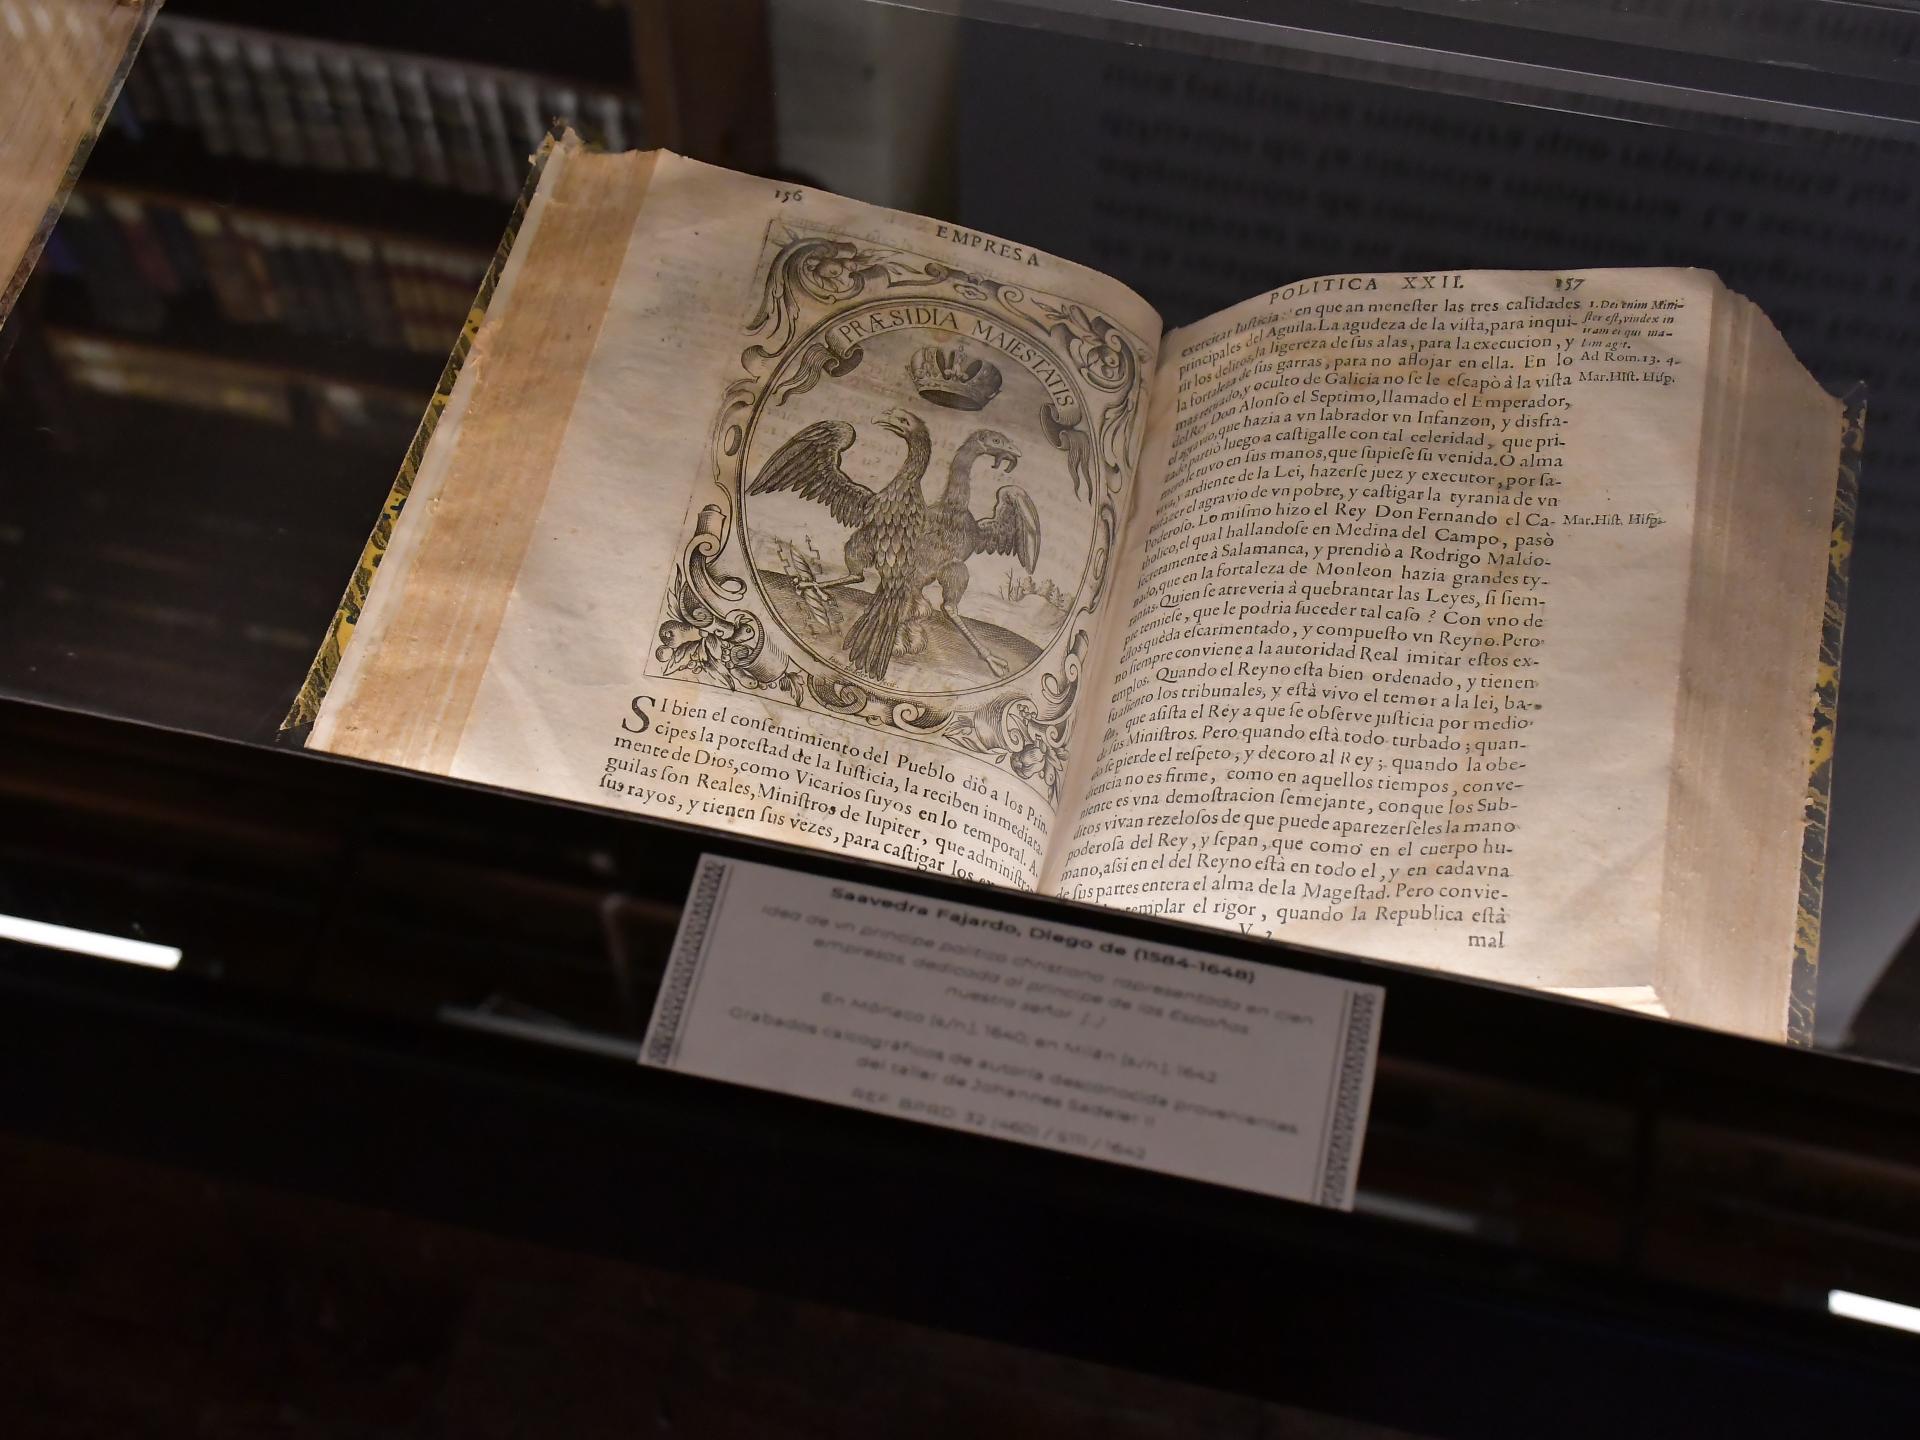 156
EMPRESA
PRÆSIDIA MAIESTATIS
SI bien el conſentimiento del Pueblo diò a los Prin-
cipes la poteſtad de la Iuſticia, la reciben inmediata-
mente de Dios, como Vicarios ſuyos en lo temporal. A-
guilas ſon Reales, Miniſtros de Iupiter, que adminiſtran
ſus rayos, y tienen ſus vezes, para caſtigar los
POLITICA XXII.
157
exercitar Iuſticia: en que an meneſter las tres calidades
principales del Aguila. La agudeza de la viſta, para inqui-
rir los delitos, la ligereza de ſus alas, para la execucion, y
la fortaleza de ſus garras, para no aflojar en ella. En lo
mas retirado, y oculto de Galicia no ſe le eſcapò à la viſta
del Rey Don Alonſo el Septimo, llamado el Emperador,
el agravio, que hazia a vn labrador vn Infanzon, y disfra-
zado partiò luego a caſtigalle con tal celeridad, que pri-
mero le tuvo en ſus manos, que ſupieſe ſu venida. O alma
viva, y ardiente de la Lei, hazerſe juez y executor, por ſa-
tisfazer el agravio de vn pobre, y caſtigar la tyrania de vn
Poderoſo. Lo miſmo hizo el Rey Don Fernando el Ca-
tholico, el qual hallandoſe en Medina del Campo, pasò
ſecretamente à Salamanca, y prendiò a Rodrigo Maldo-
nado, que en la fortaleza de Monleon hazia grandes ty-
ranias. Quien ſe atreveria à quebrantar las Leyes, ſi ſiem-
pre temieſe, que le podria ſuceder tal caſo? Con vno de
eſtos quèda eſcarmentado, y compueſto vn Reyno. Pero
no ſiempre conviene a la autoridad Real imitar eſtos ex-
emplos. Quando el Reyno eſta bien ordenado, y tienen
ſu aſiento los tribunales, y eſtà vivo el temor a la lei, ba-
ſta, que aſiſta el Rey a que ſe obſerve juſticia por medio
de ſus Miniſtros. Pero quando eſtà todo turbado; quan-
do ſe pierde el reſpeto, y decoro al Rey; quando la obe-
diencia no es firme, como en aquellos tiempos, conve-
niente es vna demoſtracion ſemejante, conque los Sub-
ditos vivan rezeloſos de que puede aparezerſeles la mano
poderoſa del Rey, y ſepan, que como en el cuerpo hu-
mano, aſsi en el del Reyno eſtà en todo el, y en cada vna
de ſus partes entera el alma de la Mageſtad. Pero convie-
templar el rigor, quando la Republica eſtà
V
mal
1. Dei enim Mini-
ſter eſt, vindex in
iram ei qui ma-
lum agit.
Ad Rom. 13. 4.
Mar. Hiſt. Hiſp.
Mar. Hiſt. Hiſp.
Saavedra Fajardo, Diego de (1584-1648)
Idea de un principe politico christiano rapresentada en cien
empresas, dedicada al principe de las Españas
nuestro señor [...]
En Mónaco [s/n.], 1640; en Milán [s/n.], 1642
Grabados calcográficos de autoría desconocida provenientes
del taller de Johannes Sadeler II
REF. BPRD. 32 (460) / S111 / 1642